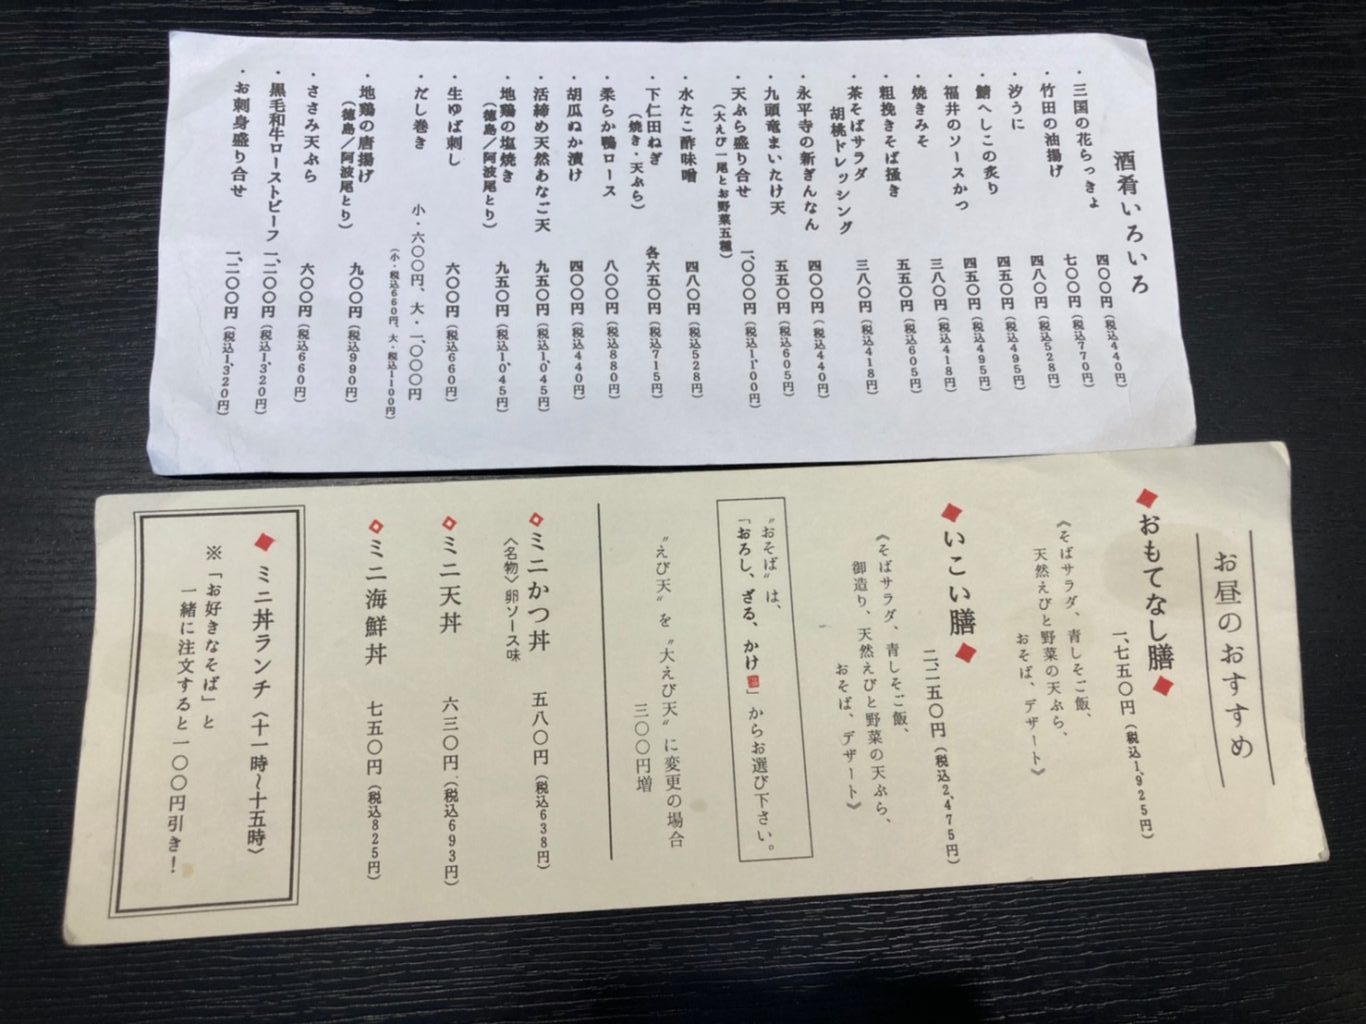 酒肴いろいろ
・三国の花らっきょ 四〇〇円（税込440円）
・竹田の油揚げ 七〇〇円（税込770円）
・汐うに 四八〇円（税込528円）
・鯖へしこの炙り 四五〇円（税込495円）
・福井のソースかつ 四五〇円（税込495円）
・焼きみそ 三八〇円（税込418円）
・粗挽きそば掻き 五五〇円（税込605円）
・茶そばサラダ
胡桃ドレッシング 三八〇円（税込418円）
・永平寺の新ぎんなん 四〇〇円（税込440円）
・九頭竜まいたけ天 五五〇円（税込605円）
・天ぷら盛り合せ 一、〇〇〇円（税込1,100円）
（大えび一尾とお野菜五種）
・水たこ酢味噌 四八〇円（税込528円）
・下仁田ねぎ 各六五〇円（税込715円）
（焼き・天ぷら）
・柔らか鴨ロース 八〇〇円（税込880円）
・胡瓜ぬか漬け 四〇〇円（税込440円）
・活締め天然あなご天 九五〇円（税込1,045円）
・地鶏の塩焼き 九五〇円（税込1,045円）
（徳島／阿波尾とり）
・生ゆば刺し 六〇〇円（税込660円）
・だし巻き 小・六〇〇円、大・一、〇〇〇円
（小・税込660円、大・税込1100円）
・地鶏の唐揚げ 九〇〇円（税込990円）
（徳島／阿波尾とり）
・ささみ天ぷら 六〇〇円（税込660円）
・黒毛和牛ローストビーフ 一、二〇〇円（税込1,320円）
・お刺身盛り合せ 一、二〇〇円（税込1,320円）
お昼のおすすめ
◆おもてなし膳◆
一、七五〇円（税込1,925円）
《そばサラダ、青しそご飯、
天然えびと野菜の天ぷら、
おそば、デザート》
◆いこい膳◆
二、二五〇円（税込2,475円）
《そばサラダ、青しそご飯、
御造り、天然えびと野菜の天ぷら、
おそば、デザート》
“おそば”は、
「おろし、ざる、かけ」からお選び下さい。
“えび天”を“大えび天”に変更の場合
三〇〇円増
ミニかつ丼 五八〇円（税込638円）
〈名物〉卵ソース味
ミニ天丼 六三〇円（税込693円）
ミニ海鮮丼 七五〇円（税込825円）
◆ミニ丼ランチ〈十一時～十五時〉
※「お好きなそば」と
一緒に注文すると一〇〇円引き！